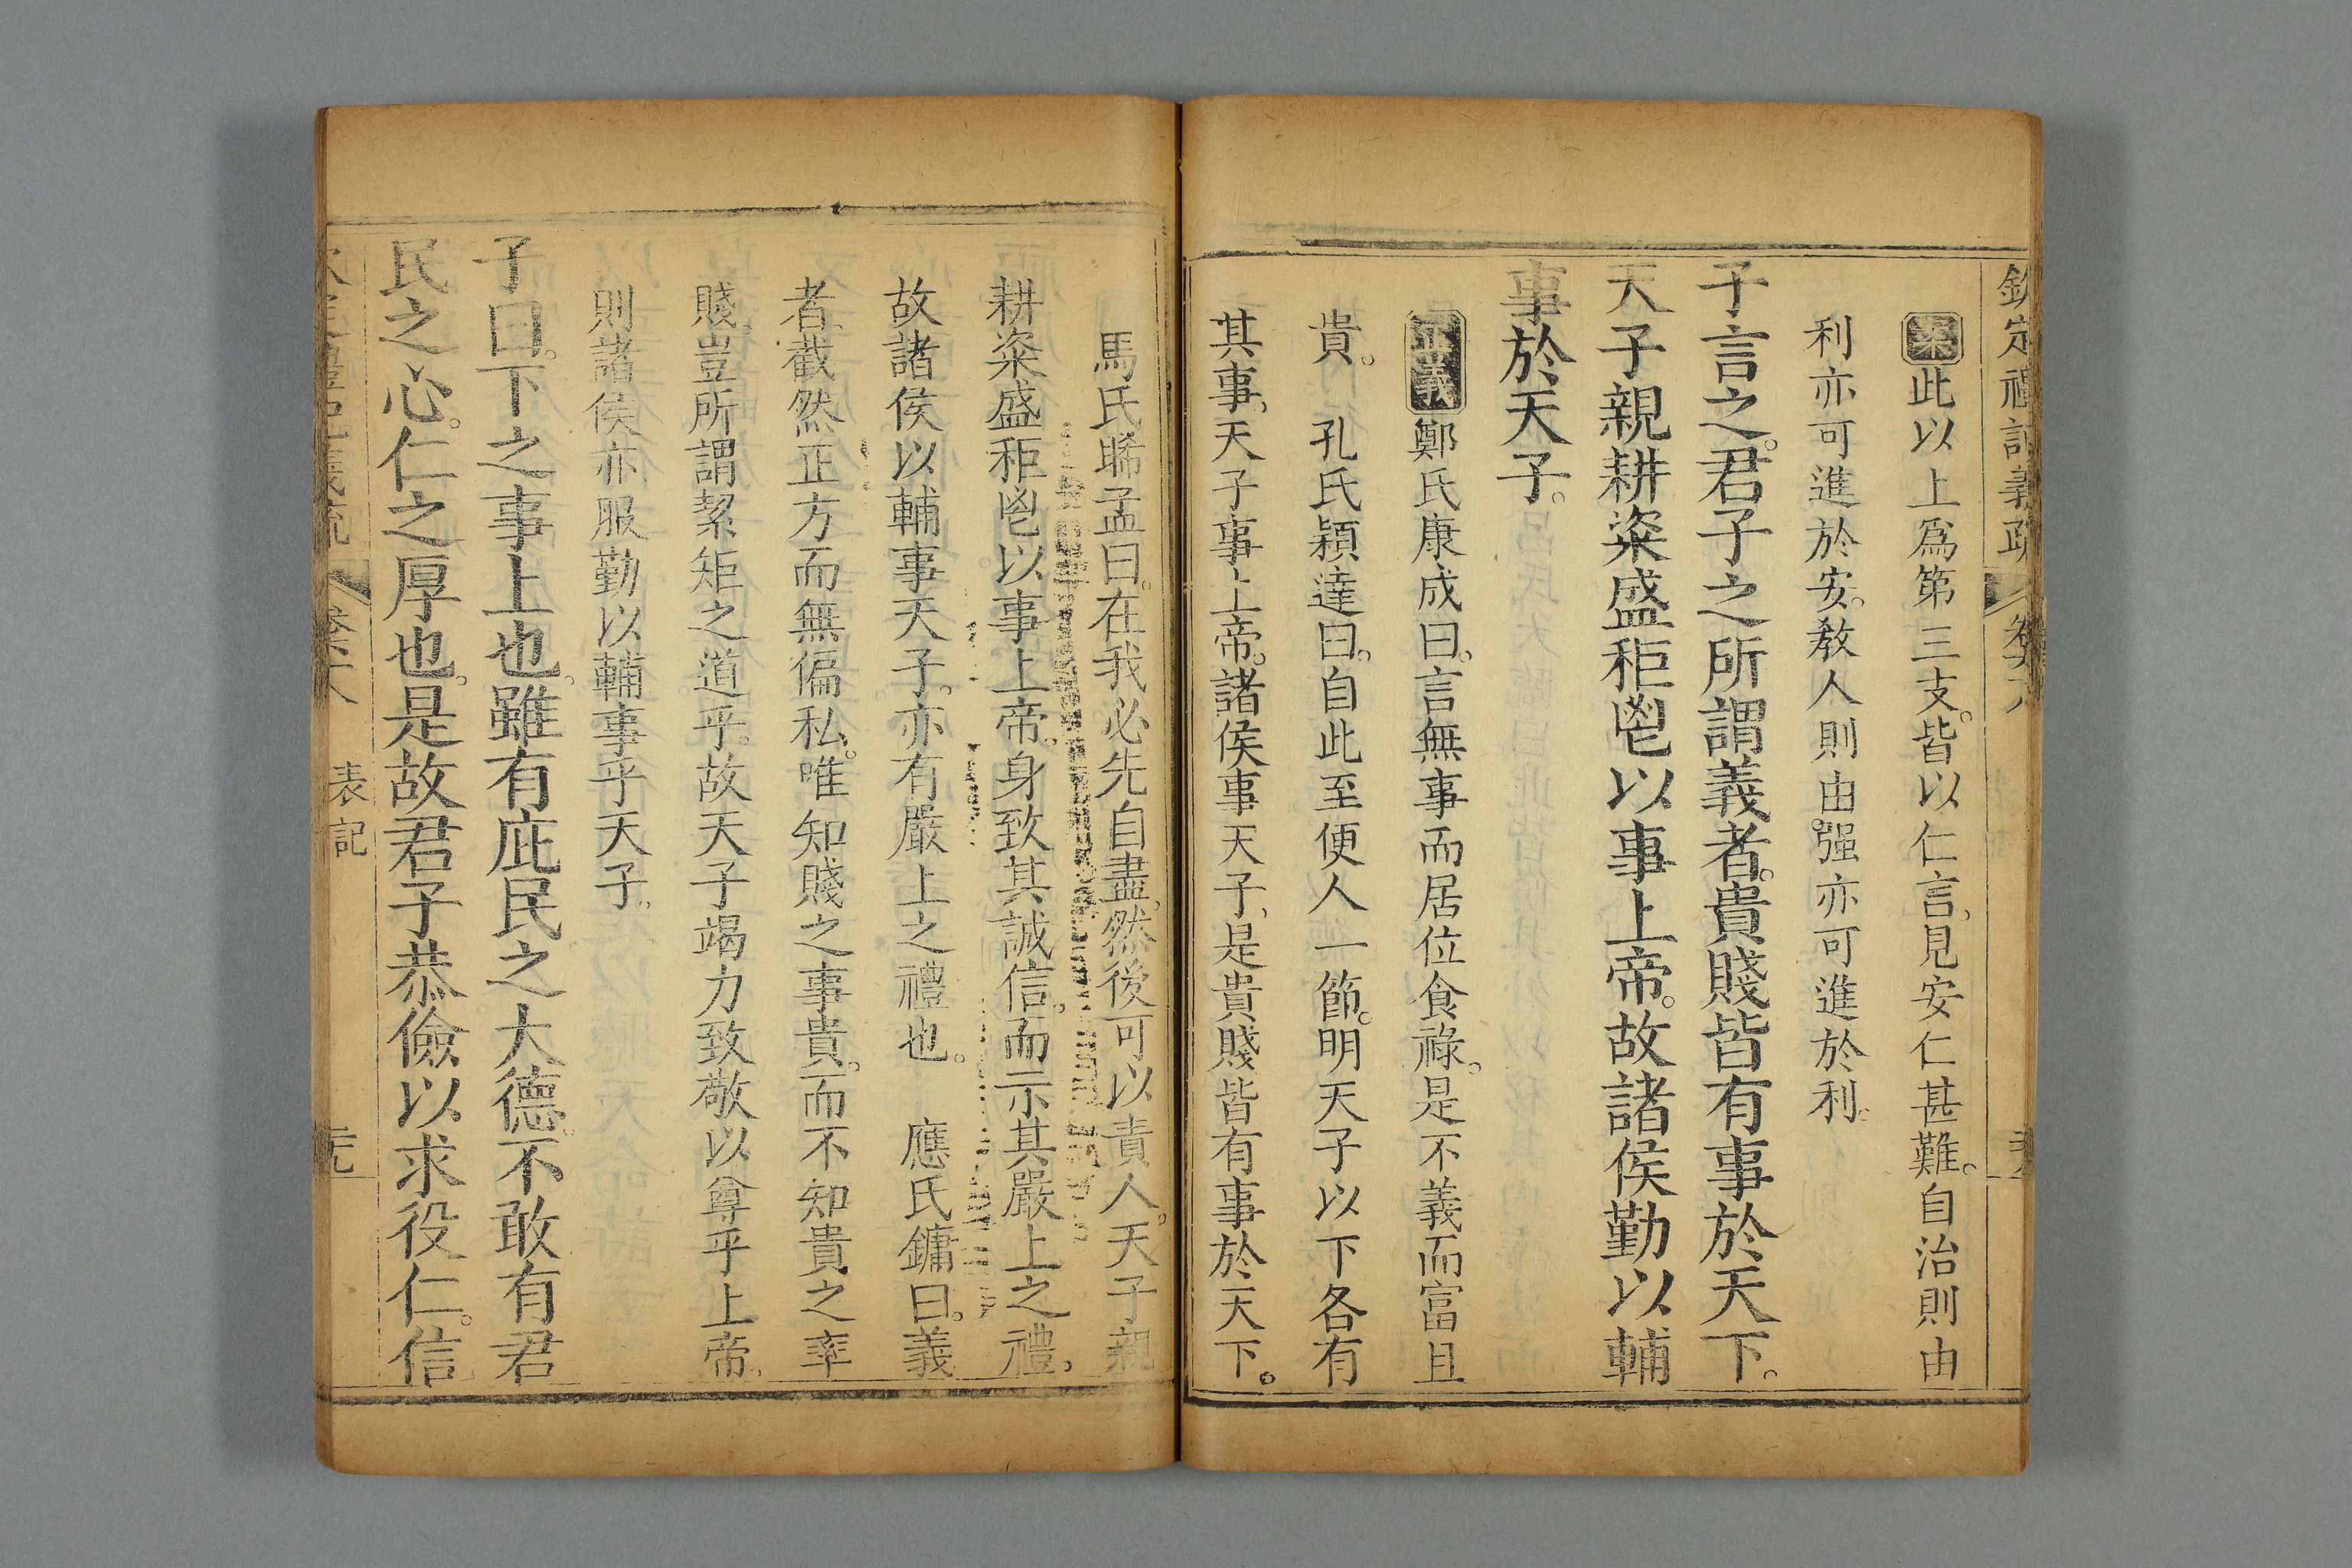 欽定禮記義疏 卷六八
案此以上爲第三支。皆以仁言。見安仁甚難。自治則由
利亦可進於安。敎人則由强亦可進於利。
子言之。君子之所謂義者。貴賤皆有事於天下。
天子親耕粢盛秬鬯以事上帝。故諸侯勤以輔
事於天子。
正義 鄭氏康成曰。言無事而居位食祿。是不義而富且
貴。 孔氏穎達曰。自此至便人一節。明天子以下各有
其事。天子事上帝。諸侯事天子。是貴賤皆有事於天下。
馬氏睎孟曰。在我必先自盡。然後可以責人。天子親
耕粢盛秬鬯以事上帝。身致其誠信。而示其嚴上之禮。
故諸侯以輔事天子。亦有嚴上之禮也。 應氏鏞曰。義
者。截然正方而無偏私。唯知賤之事貴。而不知貴之率
賤。豈所謂絜矩之道乎。故天子竭力致敬以尊乎上帝。
則諸侯亦服勤以輔事乎天子。
子曰。下之事上也。雖有庇民之大德。不敢有君
民之心。仁之厚也。是故君子恭儉以求役仁。信
表記